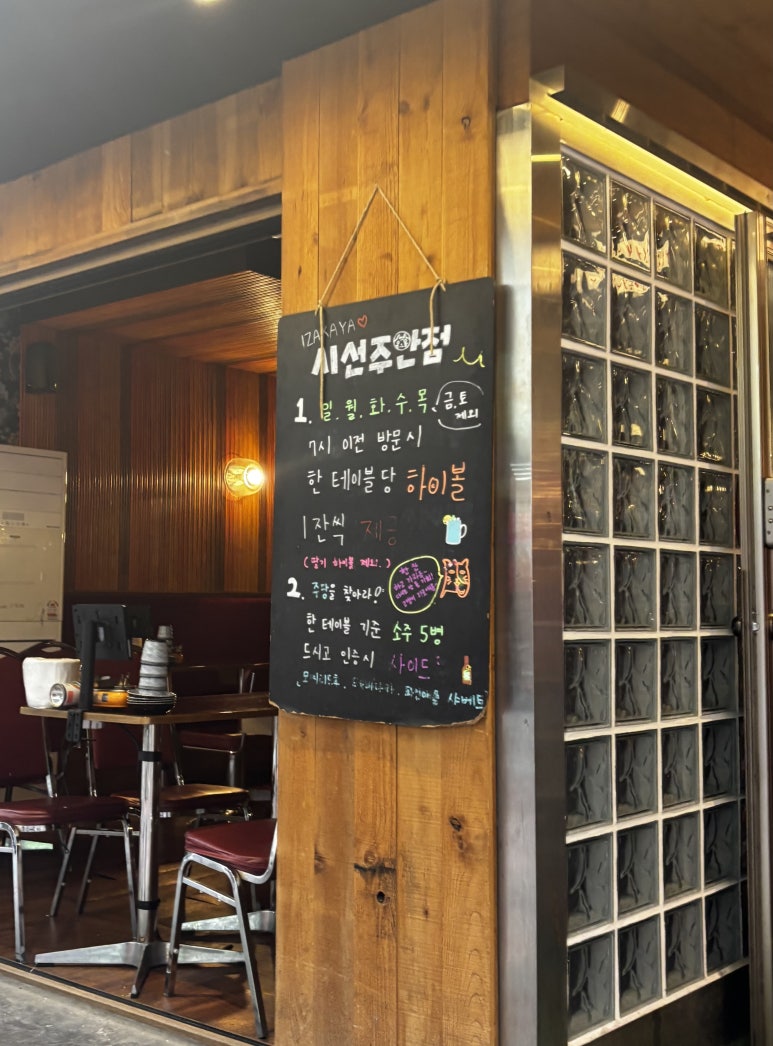 IZAKAYA♡
시선주안점
1. 일.월.화.수.목. 금.토 제외
7시 이전 방문시
한 테이블당 하이볼
1잔씩 제공
(딸기 하이볼 제외.)
2. 주당을 찾아라!
한 테이블 기준 소주 5병
드시고 인증시 사이드
샤베트